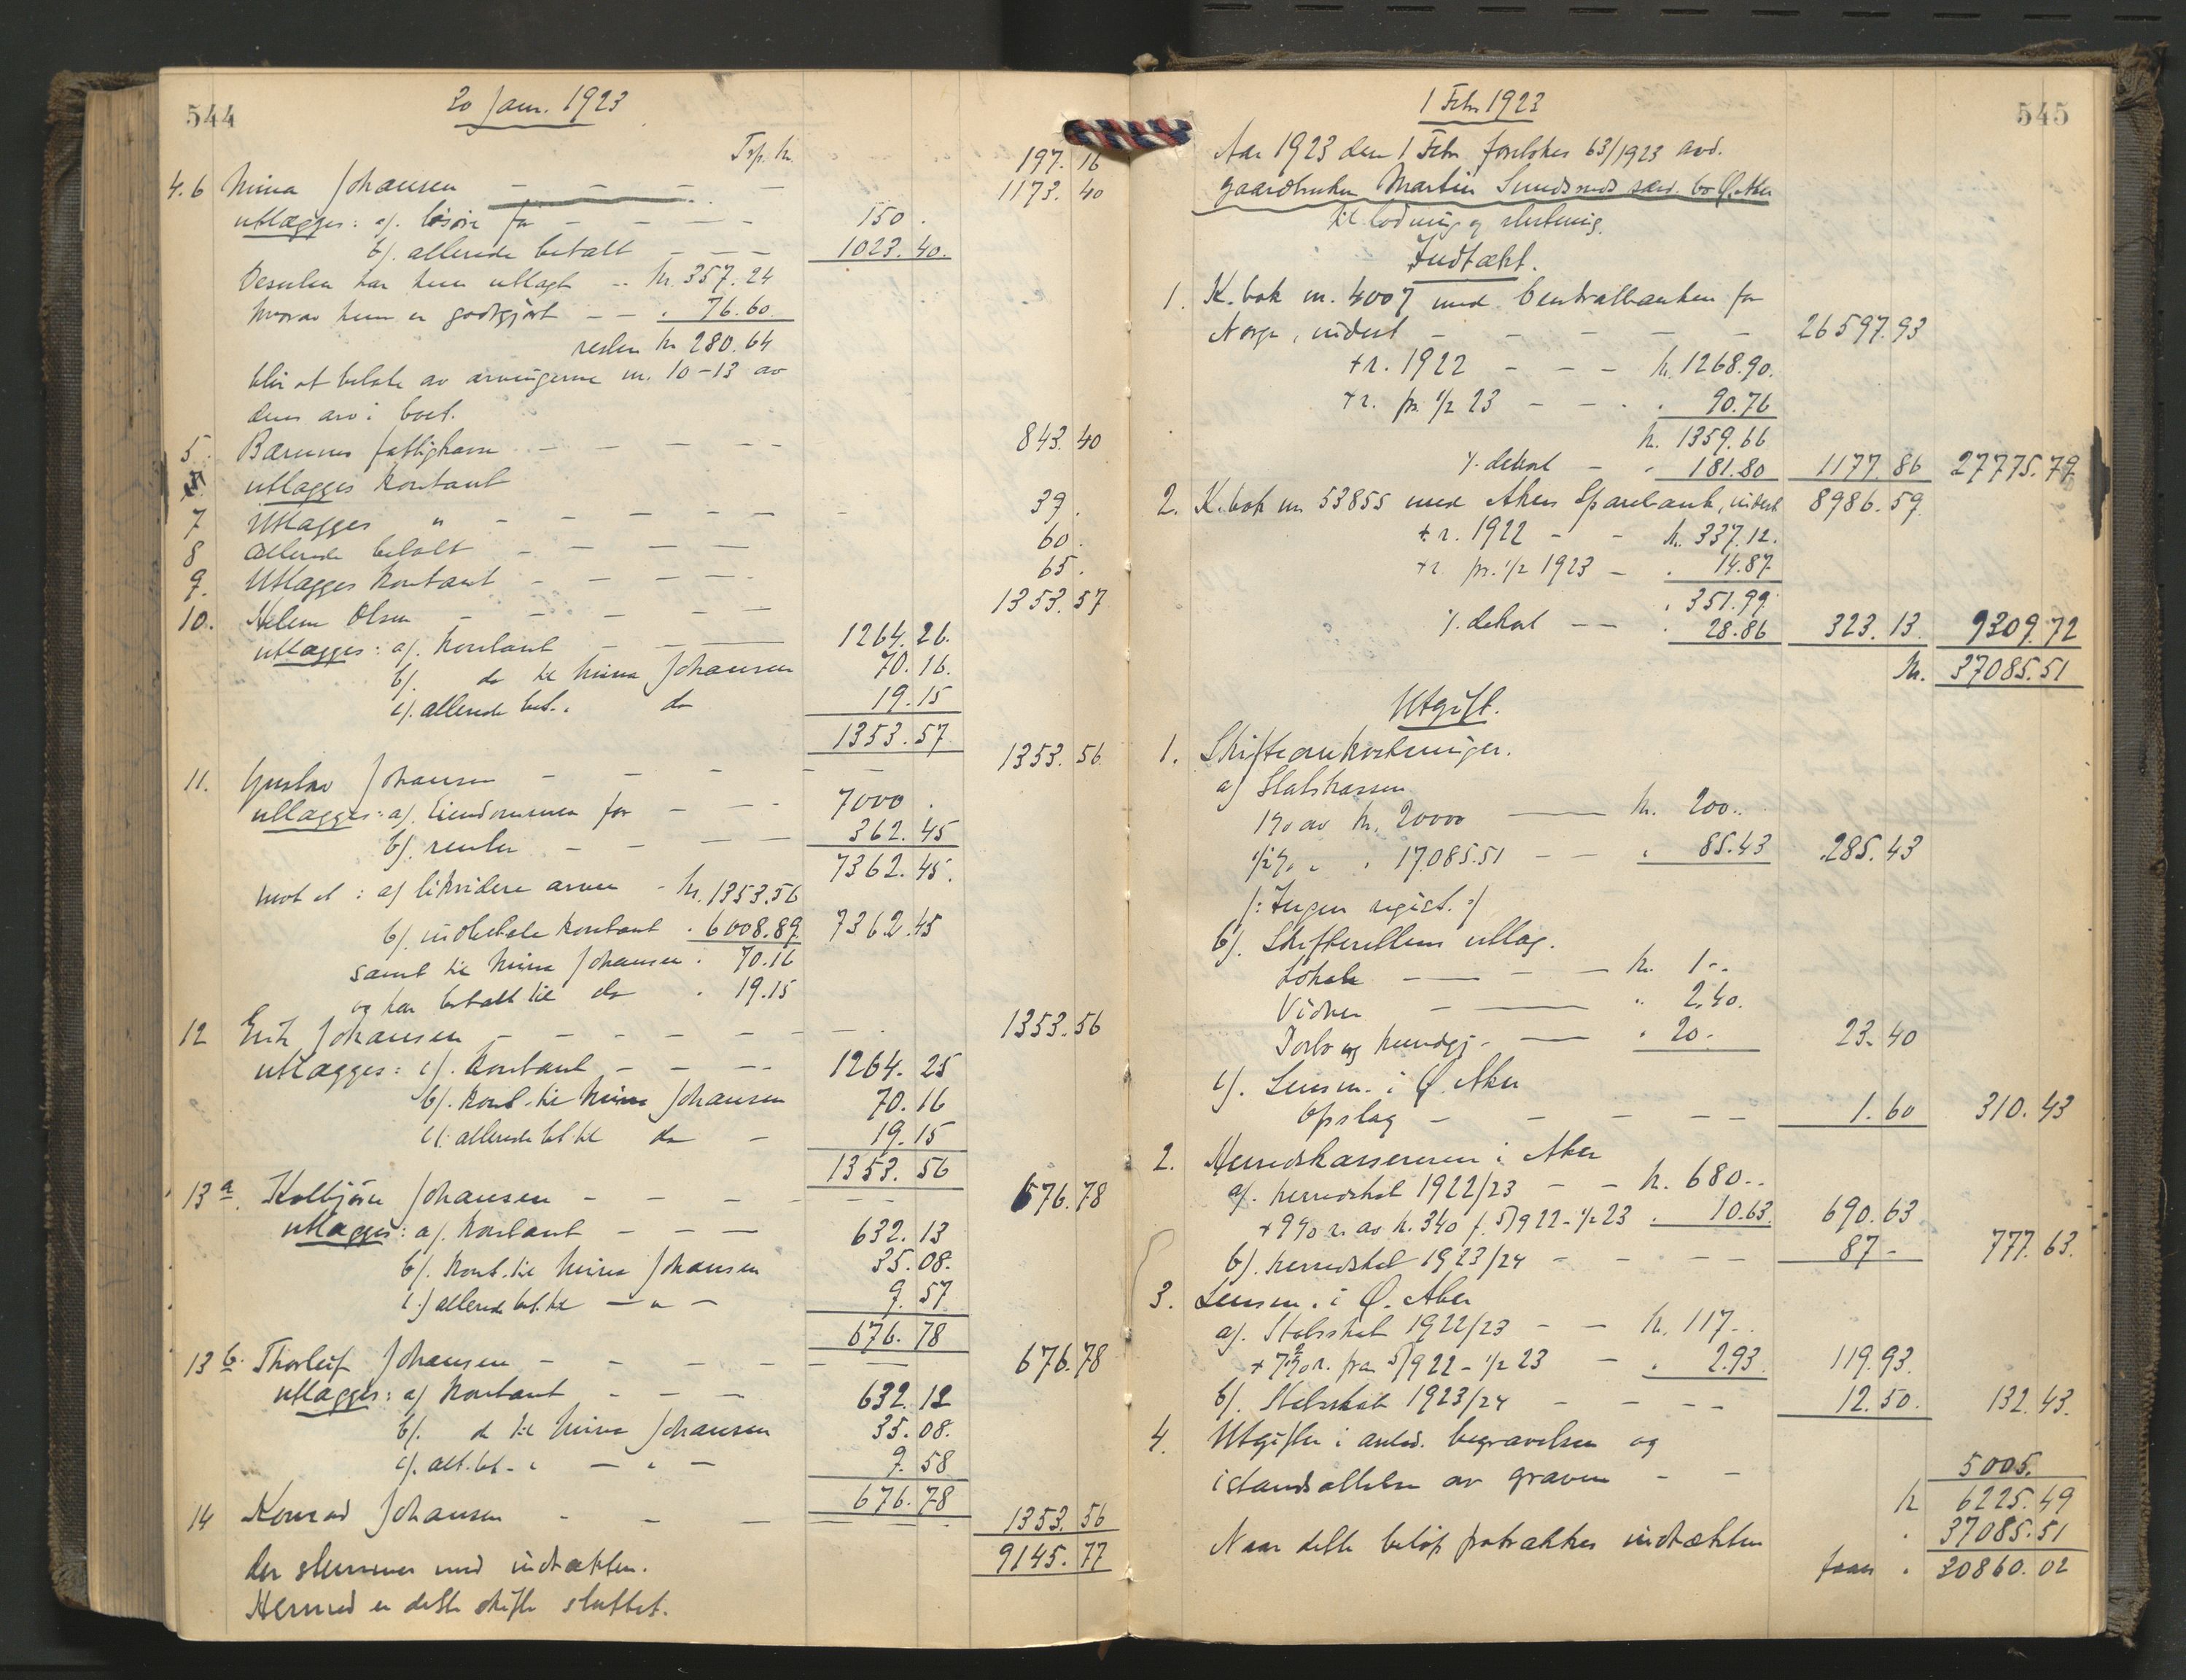 544
20 Jan. 1923
Trp. kr. 197.16
4.6 Mina Johansen — — — — 1173.40
utlægges: a). løsøre for — — — 150.
b). allerede betalt — — — 1023.40.
Desuten har hun utlagt -- kr. 357.24
hvorav hun er godtgjort — — . 76.60
resten kr 280.64
blir at betale av arvingerne nr. 10-13 av
deres arv i boet.
5. Bærums fattigkasse — — — — 843.40
utlægges kontant
7 Utlægges " — — — — 39.
8 allerede betalt — — — — 60.
9. Utlægges kontant — — — — 65.
10. Helene Olsen — — — — 1353.57
utlægges: a). kontant — — 1264.26.
b). do til Mina Johansen 70.16.
c). allerede bet. " do 19.15
1353.57
11. Gustav Johansen — — — — 1353.56
utlægges: a). Eiendommen for — — 7000.
b). renter — — — — 362.45
7362.45.
mot at: a) likvidere arven - kr. 1353.56
b). indbetale kontant . 6008.89 7362.45
samt til Mina Johansen . 70.16
og har betalt til do . 19.15
12 Erik Johansen — — — — 1353.56
utlægges: a). kontant — — — 1264.25
b). kont. til Mina Johansen 70.16
c). allerede bet. til do — 19.15
1353.56
13 a. Kolbjørn Johansen — — — — 676.78
utlægges: a). kontant — — — 632.13
b). kont. til Mina Johansen 35.08.
c.) allerede bet. til — " — 9.57
676.78
13 b. Thorleif Johansen — — — — 676.78
utlægges: a) kontant — — — 632.12
b). do til Mina Johansen 35.08.
c). all. bet. - " — " — 9.58
676.78
14 Konrad Johansen — — — 1353.56
9145.77
der stemmer med indtækten.
Hermed er dette skifte sluttet.
545
1 Febr 1923
Aar 1923 den 1 Febr. foretokes 63/1923 avd.
gaardbruker Martin Sundsruds særb. bo Ø. Aker
til lodning og slutning.
Indtækt.
1. K. bok nr. 4007 med Centralbanken for
Norge, indest — — — — — 26597.93
+ r. 1922 — — — kr. 1268.90.
+ r. pr. 1/2 23 — — . . 90.76
kr. 1359.66
÷ dekort — . 181.80 1177.86 27775.79
2. K. bok nr. 53855 med Akers Sparebank, indest 8986.59
+ r. 1922 — — kr. 337.12.
+ r. pr. 1/2 1923 — . 14.87
. 351.99
÷ dekort — — . 28.86 323.13 9309.72
kr. 37085.51
Utgift.
1. Skifteomkostninger.
a) Statskassen
1% av kr. 20000 — kr. 200..
1/2 % " . 17085.51 — — . 85.43 285.43
/: Ingen regist. :/
b). Skifterettens utlæg.
Lokale — — — kr. 1-.
Vidner — — " 2.40.
Porto og kundgj. — — " 20.- 23.40
c). Lensm. i Ø. Aker
Opslag — — — — — 1.60 310.43
2. Herredskassereren i Aker
a). herredskat 1922/23 — — kr. 680..
+ 9% r. av kr. 340 f. 5/9 22 - 1/2 23 . 10.63. 690.63
b). herredskat 1923/24 — — — — 87- 777.63.
3. Lensm. i Ø. Aker
a). Statsskat 1922/23 — — kr. 117-.
+ r. fra 5/9 22 - 1/2 23 — . 2.93. 119.93.
b). Statsskat 1923/24 — — — — 12.50. 132.43.
4. Utgifter i anled. begravelsen og
istandsættelse av graven — — 5005.
kr 6225.49
Naar dette beløp fratrækkes indtækten . 37085.51
faaes . 30860.02